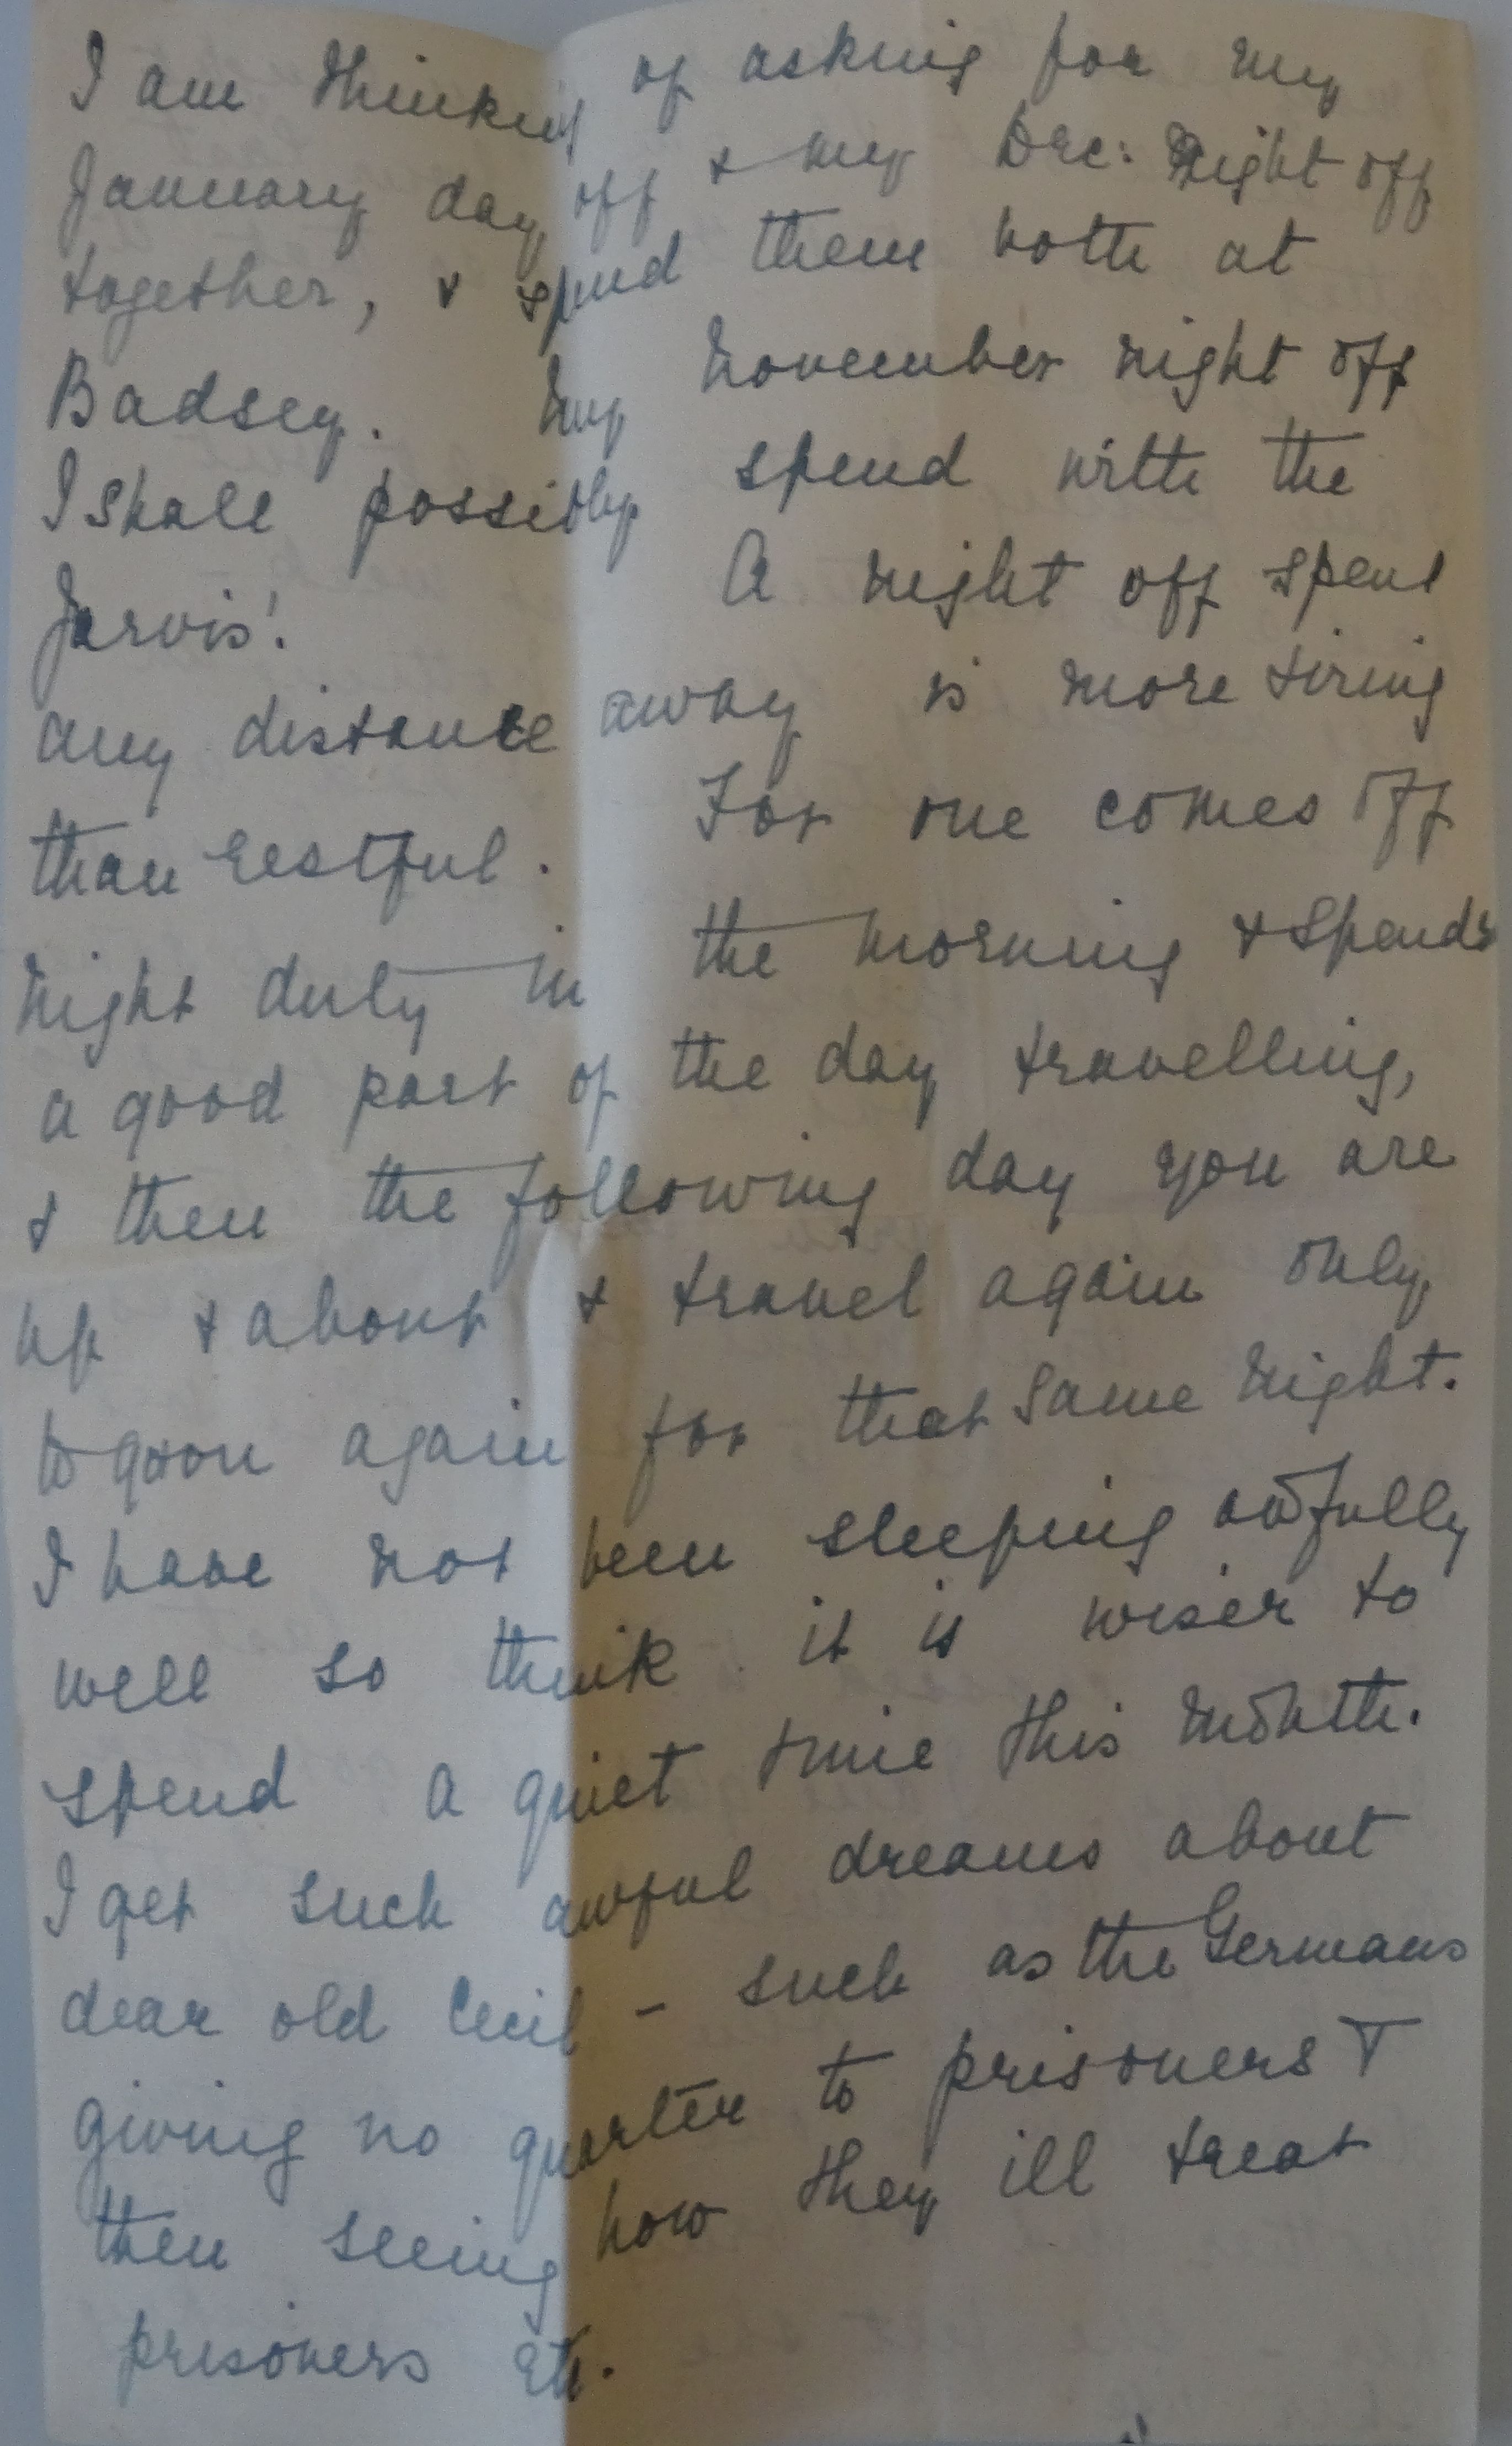 I am thinking of asking for my
January day off & my Dec: Night off
together, & spend them both at
Badsey. My November night off
I shall possibly spend with the
Jarvis'. A night off spent
any distance away is more tiring
than restful. For one comes off
night duty in the morning & spends
a good part of the day travelling,
& then the following day you are
up & about & travel again only
to go on again for that same night.
I have not been sleeping awfully
well so think it is wiser to
spend a quiet time this month.
I get such awful dreams about
dear old Cecil - such as the Germans
giving no quarter to prisoners &
then seeing how they ill treat
prisoners etc.